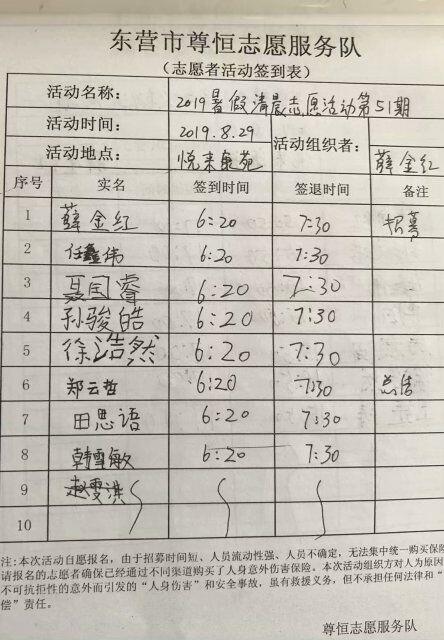 东营市尊恒志愿服务队
（志愿者活动签到表）
活动名称： 2019暑假清晨志愿活动第51期
活动时间： 2019.8.29 活动组织者： 薛金红
活动地点： 悦来泉苑
序号 实名 签到时间 签退时间 备注
1 薛金红 6:20 7:30 招募
2 任鑫伟 6:20 7:30
3 聂国睿 6:20 7:30
4 孙骏皓 6:20 7:30
5 徐浩然 6:20 7:30
6 郑云哲 6:20 7:30 总结
7 田思语 6:20 7:30
8 韩雪敏 6:20 7:30
9 赵雯淇
10
注：本次活动自愿报名，由于招募时间短、人员流动性强、人员不确定，无法集中统一购买保险
请报名的志愿者确保已经通过不同渠道购买了人身意外伤害保险。本次活动组织方对人为原因
不可抗拒性的意外而引发的“人身伤害”和安全事故，虽有救援义务，但不承担任何法律和“
偿”责任。
尊恒志愿服务队